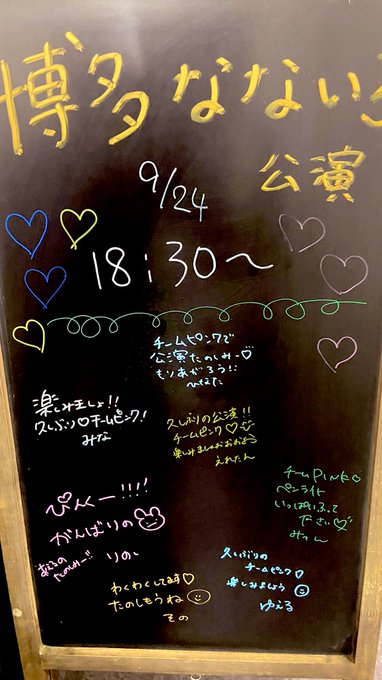 博多なないろ
公演
9/24
18:30〜
チームピンクで
公演たのしみー♡
もりあがろう!!
ひなた
楽しみましょ!!
久しぶり♡チームピンク!
みな
久しぶりの公演!!
チームピンク♡
楽しみましょおおおお
えれたん
ぴんくー!!!!
がんばりの
あえるの
たのしみー!!
りの
チームPINK♡
ペンライト
いっぱいふって
下さい♡
みっん
わくわくしてます♡
たのしもうね
その
久しぶりの
チームピンク♡
楽しみましょう
ゆえる